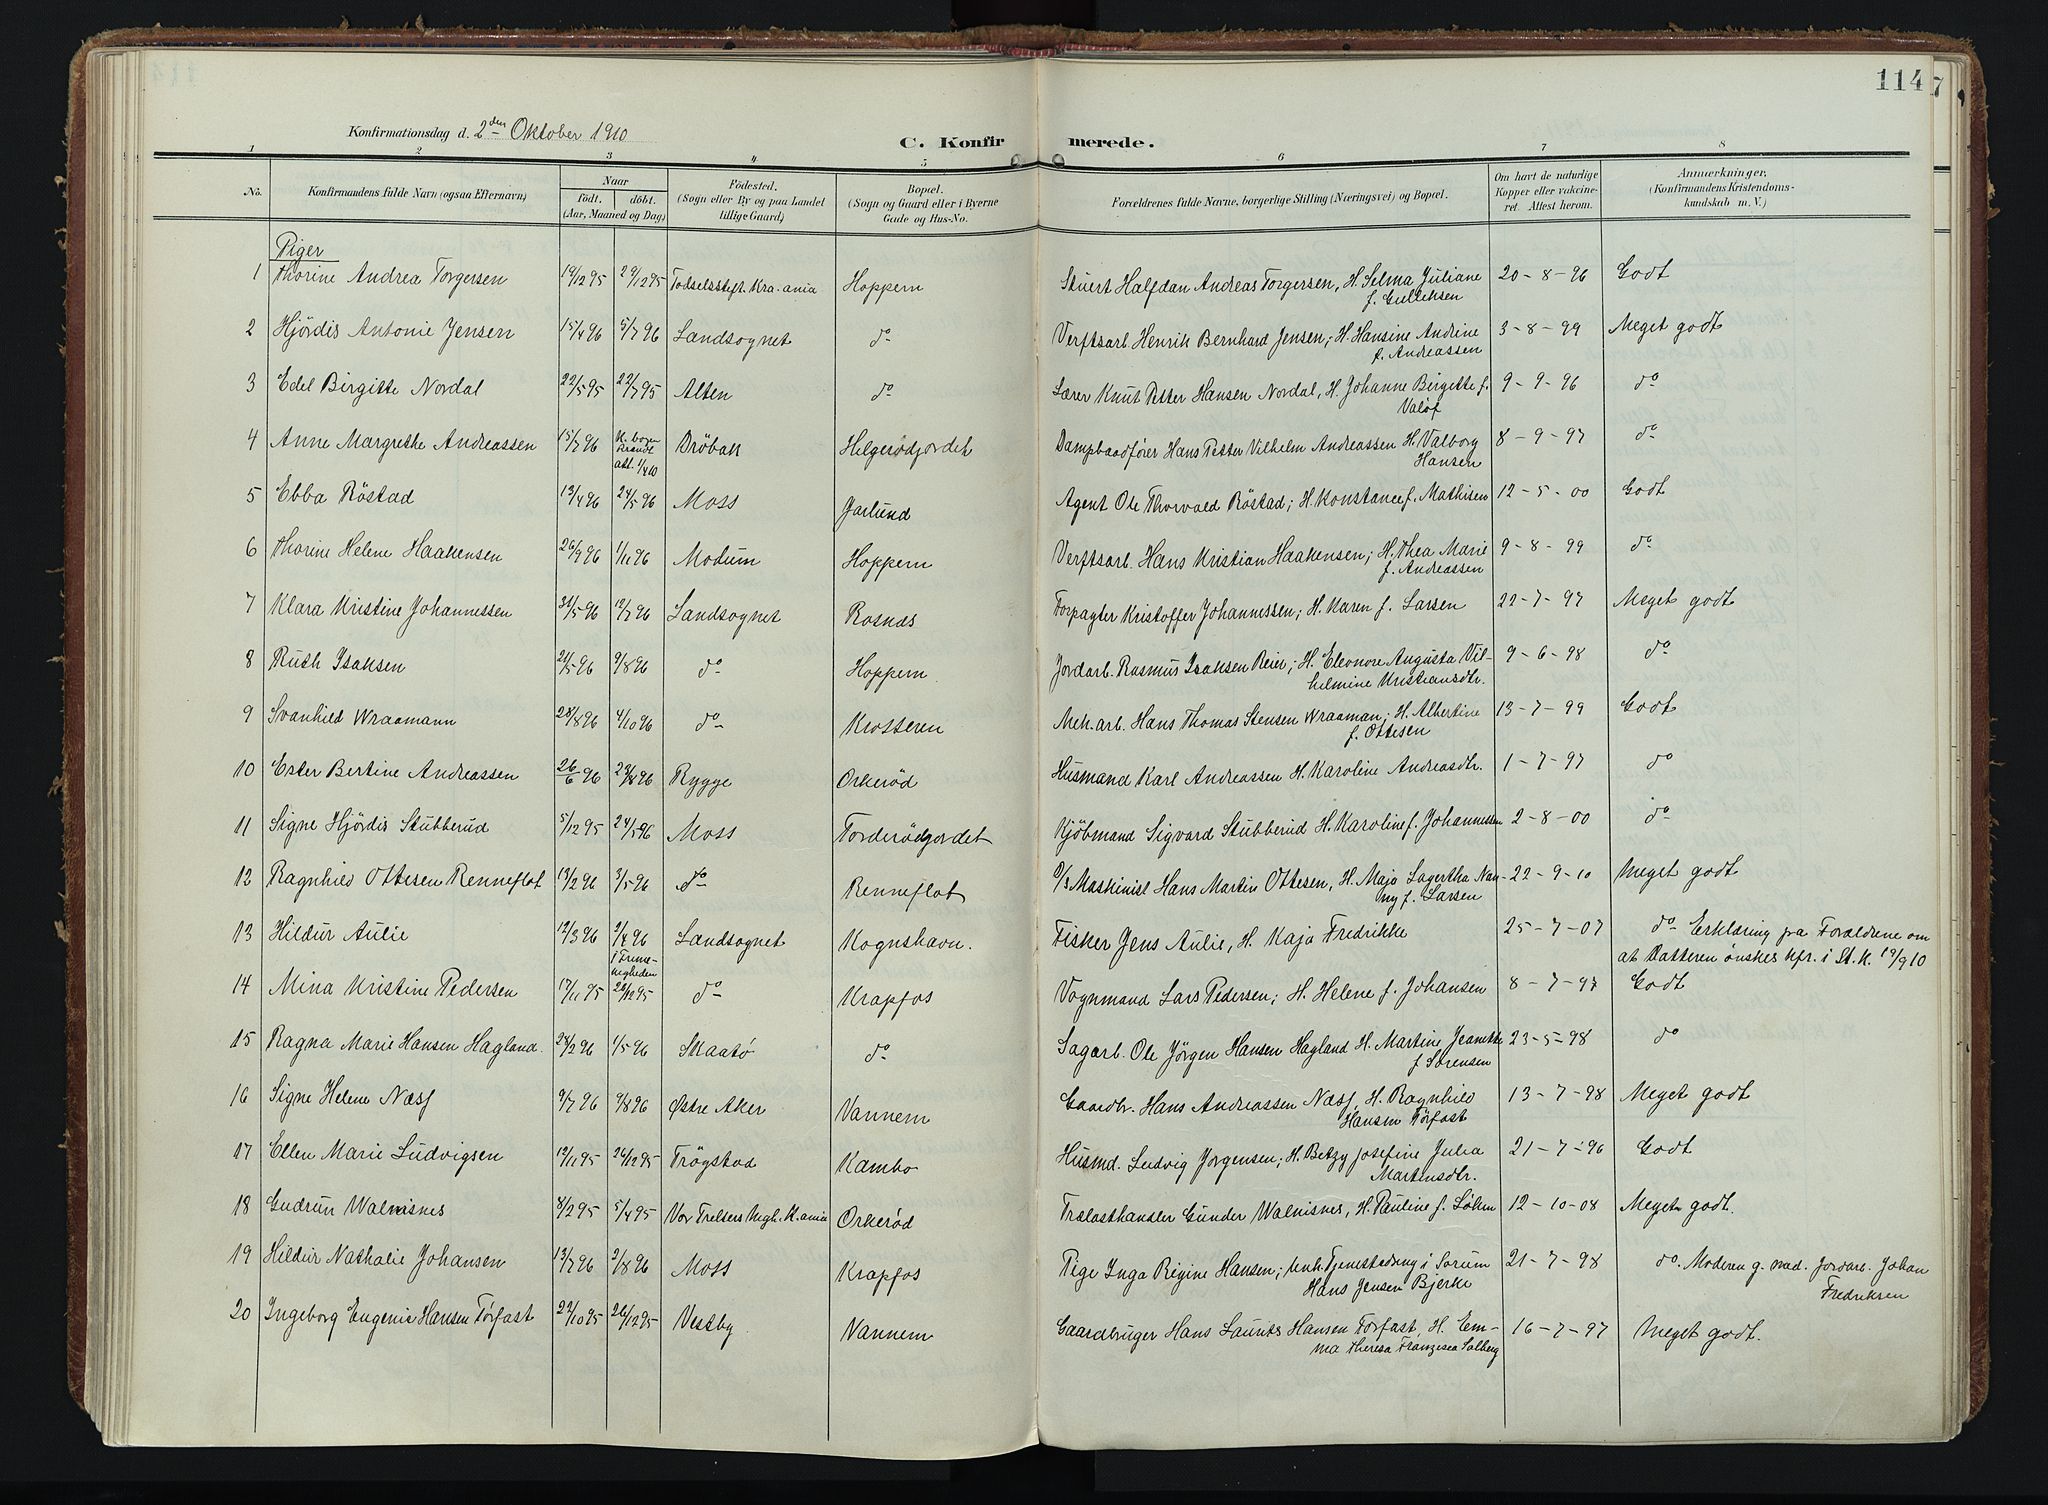 114
7
Konfirmationsdag d. 2den Oktober 1910
C. Konfirmerede.
1 2 3 4 5 6 7 8
No. Konfirmandens fulde Navn (ogsaa Efternavn) Naar født. døbt. (Aar, Maaned og Dag) Födested. (Sogn eller By og paa Landet tillige Gaard) Bopæl. (Sogn og Gaard eller i Byerne Gade og Hus-No. Forældrenes fulde Navne, borgerlige Stilling (Næringsvei) og Bopæl. Om havt de naturlige Kopper eller vaccineret. Attest herom. Anmærkninger. (Konfirmandens Kristendomskundskab m. V.)
Piger
1 Thorine Andrea Torgersen 19/12 95 29/12 95 Fødselsstift. Kra.ania Hoppern Stuert Halfdan Andreas Torgersen, H. Selma Juliane f. 20-8-96 Godt
2 Hjördis Antonie Jensen 15/4 96 5/7 96 Landsognet do Verftsarb. Henrik Bernhard Jensen; H. Hansine Andrine f. Andreassen 3-8-99 Meget godt
3 Edel Birgitte Nordal 22/5 95 22/7 95 Alten do Lærer Knut Petter Hansen Nordal, H. Johanne Birgitte f. Valöf 9-9-96 do
4 Anne Margrethe Andreassen 15/7 96 Dröbak Helgerödjordet Dampbaadfører Hans Petter Vilhelm Andreassen H. Valborg Hansen 8-9-97 do
5 Ebba Röstad 13/4 96 24/5 96 Moss Garlund Agent Ole Thorvald Röstad; H. Konstance f. Mathisen 12-5-00 Godt
6 Thorine Helene Haakensen 26/9 96 1/11 96 Modum Hoppern Verftsarb. Hans Kristian Haakensen; H. Thea Marie f. Andreassen 9-8-99 do
7 Klara Kristine Johannessen 31/5 96 12/7 96 Landsognet Rosnæs Forpagter Kristoffer Johannessen; H. Karen f. Larsen 22-7-97 Meget godt
8 Ruth Isaksen 21/5 96 9/8 96 do Hoppern Jordarb. Rasmus Isaksen Reier; H. Eleonore Augusta Vilhelmine Kristiansdtr. 9-6-98 do
9 Svanhild Wraamann 28/8 96 4/10 96 do Krosseren Mek.arb. Hans Thomas Stensen Wraaman; H. Albertine f. Ottesen 13-7-99 Godt
10 Ester Bertine Andreassen 26/6 96 29/8 96 Rygge Orkerød Husmand Karl Andreassen H. Karoline Andreasdtr. 1-7-97 do
11 Signe Hjördis Stubberud 5/12 95 24/5 96 Moss Torderödjordet Kjöbmand Sigvard Stubberud H. Karoline f. Johannessen 2-8-00 do
12 Ragnhild Ottesen Renneflot 13/2 96 3/5 96 do Renneflot D/S Maskinist Hans Martin Ottesen, H. Maja Lagertha Nanny f. Larsen 22-9-10 Meget godt
13 Hildur Aulie 12/3 96 2/4 96 i Frimenigheden Landsognet Kognshavn. Fisker Jens Aulie, H. Kaja Fredrikke 25-7-07 do Erklæring fra Forældrene om at Datteren ønskes kfr. i St.K. 19/9 10
14 Mina Kristine Pedersen 17/11 95 22/12 95 do Krapfos Vognmand Lars Pedersen; H. Helene f. Johansen 8-7-97 Godt
15 Ragna Marie Hansen Hagland. 24/2 96 1/5 96 Skaatö do Sagarb. Ole Jörgen Hansen Hagland H. Martine Jeanette f Sørensen 23-5-98 do
16 Signe Helene Næss 9/7 96 9/8 96 Østre Aker Vannem Gaardbr. Hans Andreassen Næss H. Ragnhild Hansen Törfast 13-7-98 Meget godt
17 Ellen Marie Ludvigsen 12/11 95 26/12 95 Trögstad Kambo Husmd. Ludvig Jørgensen; H. Betzy Josefine Julia Martinsdtr. 21-7-96 Godt
18 Gudrun Walnisnes 8/2 95 5/4 95 Vor Frelsers Mgh. K.ania Orkerød Trælasthandler Gunder Walnisnes, H. Pauline f. Löken 12-10-08 Meget godt.
19 Hildur Nathalie Johansen 13/7 96 2/8 96 Moss Krapfos Pige Inga Regine Hansen; Unk. Tjenestedreng i Sørum Hans Jensen Bjerke 21-7-98 do. Moderen g. med. Jordarb. Johan Fredriksen
20 Ingeborg Eugenie Hansen Törfast 22/10 95 26/12 95 Vestby Vannem Gaardbruger Hans Laurits Hansen Törfast, H. Emma Theresa Franzisca Solberg 16-7-97 Meget godt.